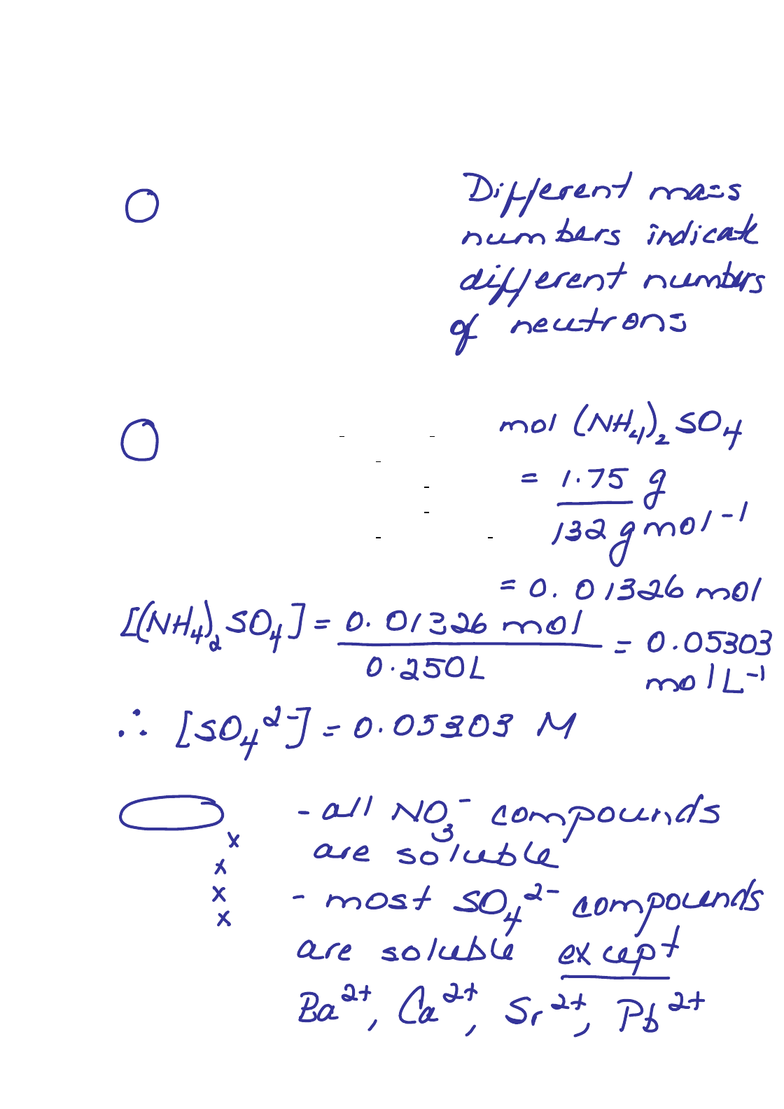 Different mass
numbers indicate
different numbers
of neutrons
mol (NH₄)₂SO₄
= 1.75 g
132 g mol⁻¹
= 0.01326 mol
[(NH₄)₂SO₄] = 0.01326 mol = 0.05303
0.250L mol L⁻¹
∴ [SO₄²⁻] = 0.05303 M
- all NO₃⁻ compounds
x
are soluble
x
x - most SO₄²⁻ compounds
x
are soluble except
Ba²⁺, Ca²⁺, Sr²⁺, Pb²⁺